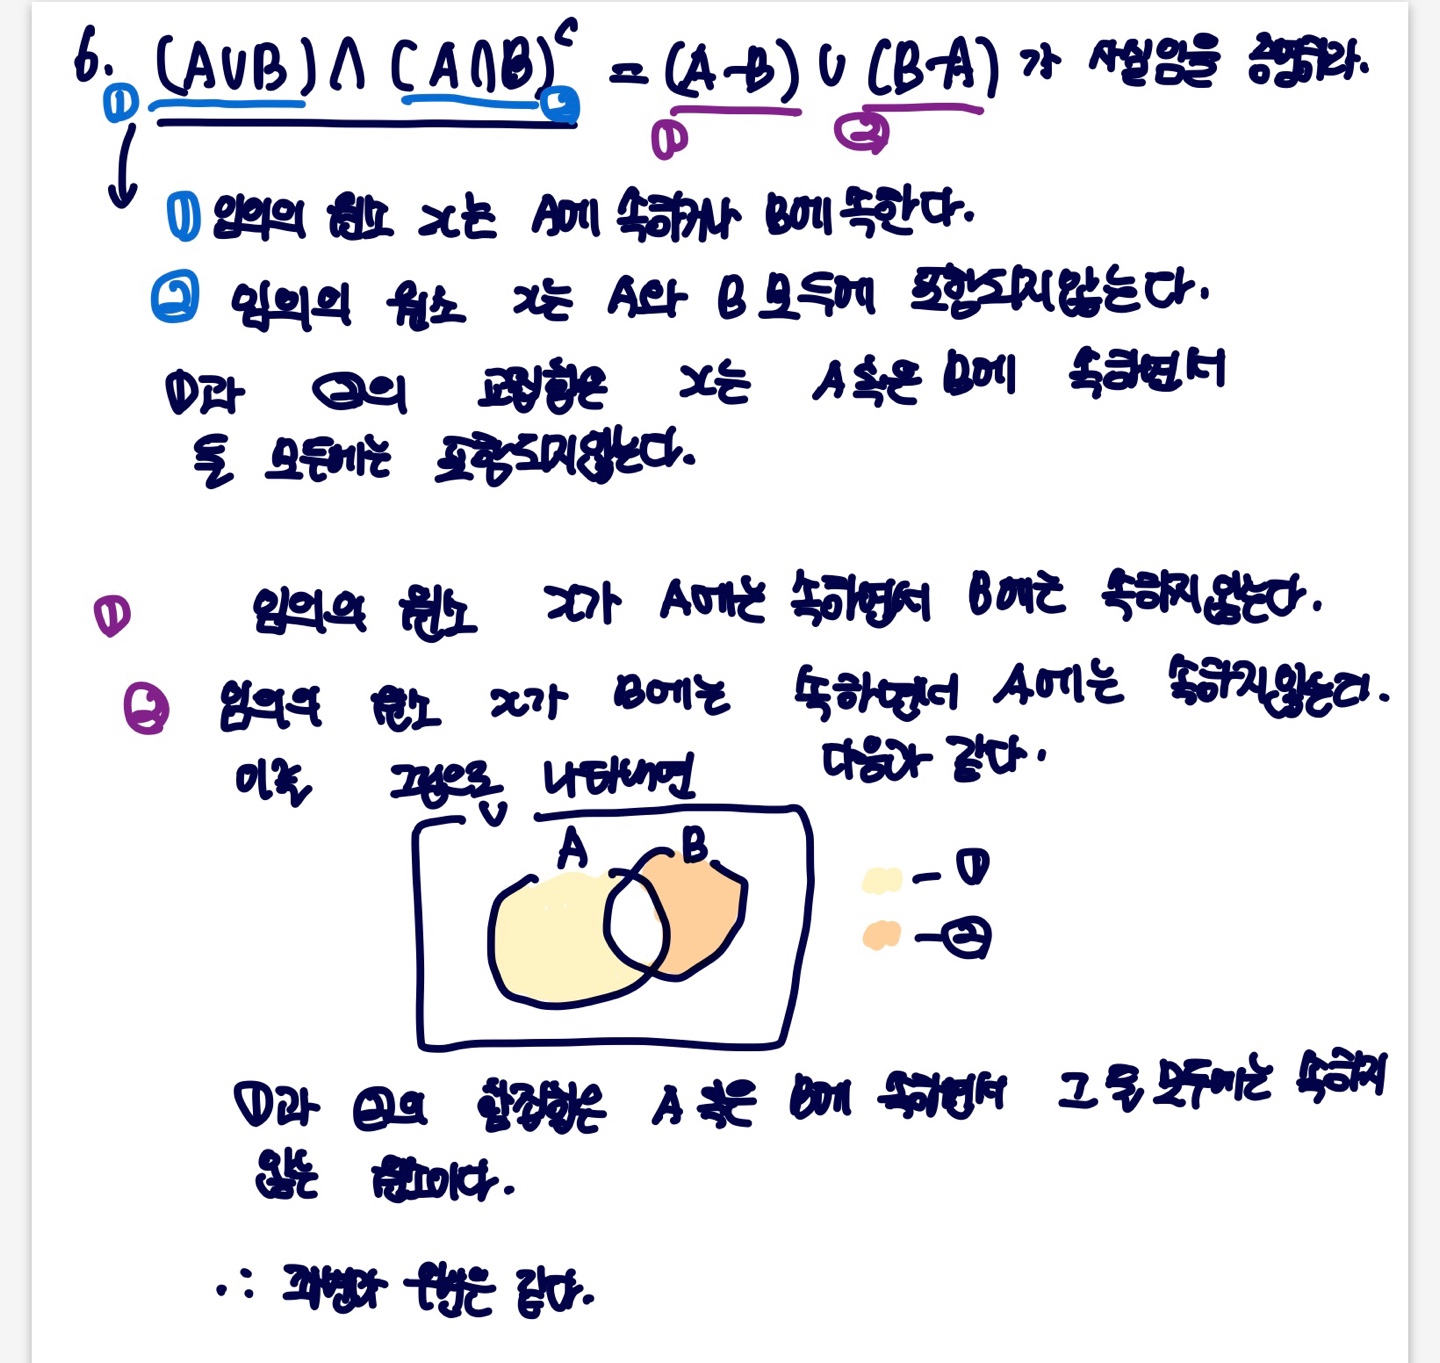 6. (A∪B)∧(A∩B)ᶜ = (A-B)∪(B-A)가 사실임을 증명하라.
① ② ① ②
① 임의의 원소 x는 A에 속하거나 B에 속한다.
② 임의의 원소 x는 A와 B 모두에 포함되지않는다.
①과 ②의 교집합은 x는 A 속은 B에 속하면서
둘 모두에는 포함되지않는다.
① 임의의 원소 x가 A에는 속하면서 B에는 속하지않는다.
② 임의의 원소 x가 B에는 속하면서 A에는 속하지않는다.
이를 그림으로 나타내면 다음과 같다.
U
A B
- ①
- ②
①과 ②의 합집합은 A 혹은 B에 속하면서 그 둘 모두에는 속하지
않는 원소이다.
∴ 좌변과 우변은 같다.